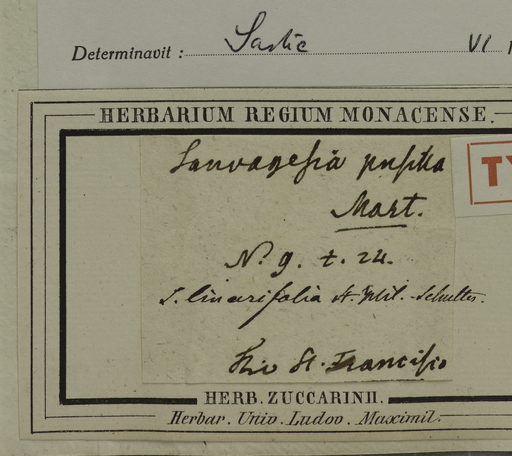 Determinavit : Sastre VI
HERBARIUM REGIUM MONACENSE.
TY
Sauvagesia pusilla
Mart.
N. g. t. 24.
S. linearifolia St. Hil. Schultes.
Rio St. Francisco
HERB. ZUCCARINII.
Herbar. Univ. Ludov. Maximil.